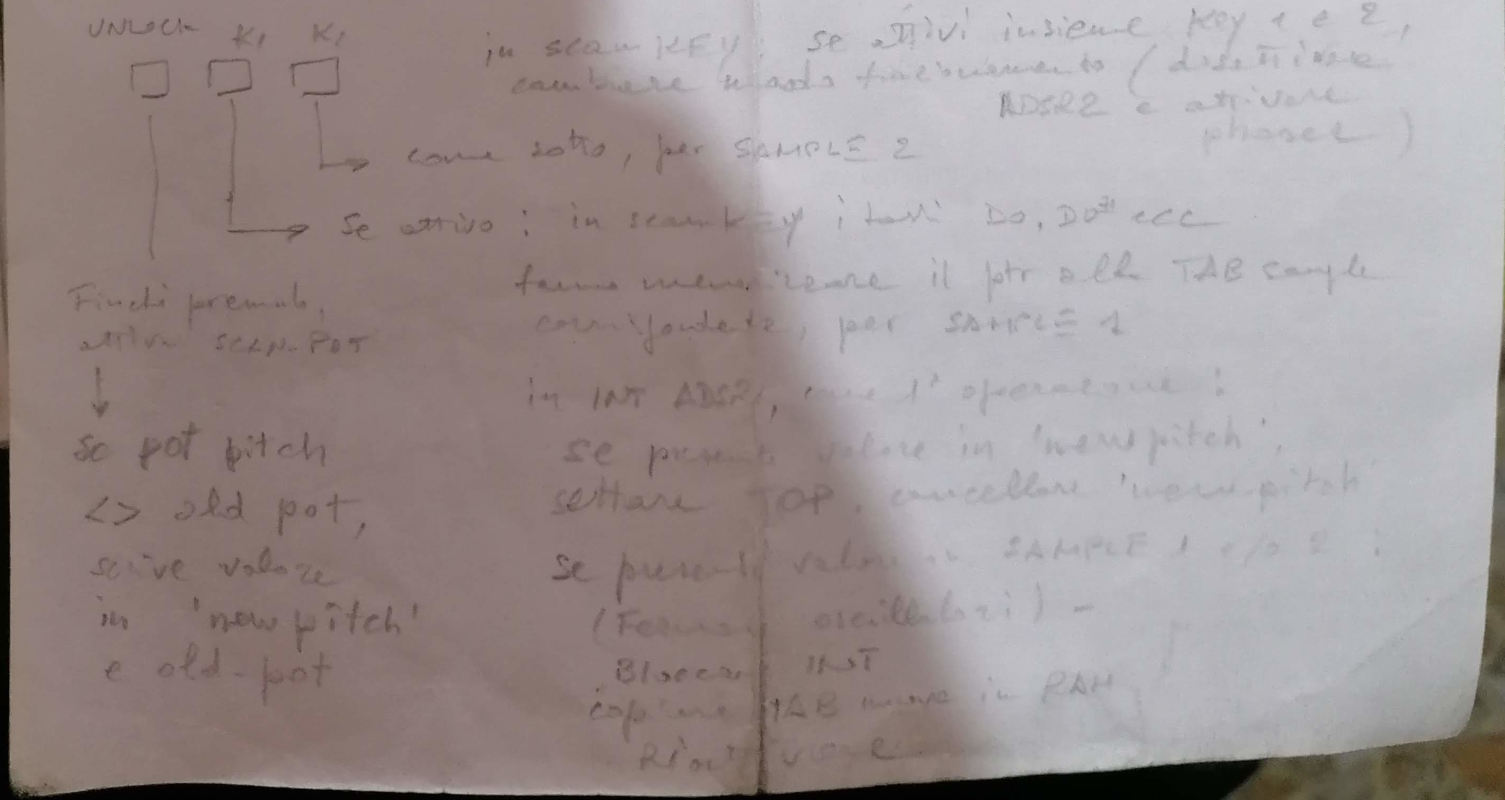 UNLOCK K1 K1
in scan KEY: se attivi insieme Key 1 e 2,
cambiare modo funzionamento (disattivare
ADSR2 e attivare
phaser)
come sotto, per SAMPLE 2
Se attivo: in scan KEY i tasti DO, DO# ecc
fanno memorizzare il ptr alla TAB sample
corrispondente, per SAMPLE 1
Finchè premuto,
attiva SCAN-POT
se pot pitch
<> old pot,
scrive valore
in 'new pitch'
e old-pot
in INT ADSR, come 1ª operazione:
se presente valore in 'new pitch',
settare TOP, cancellare 'new pitch'
se presente valore in SAMPLE 1 e/o 2:
(Fermare oscillatori) -
Bloccare INT
copiare TAB nuove in RAM